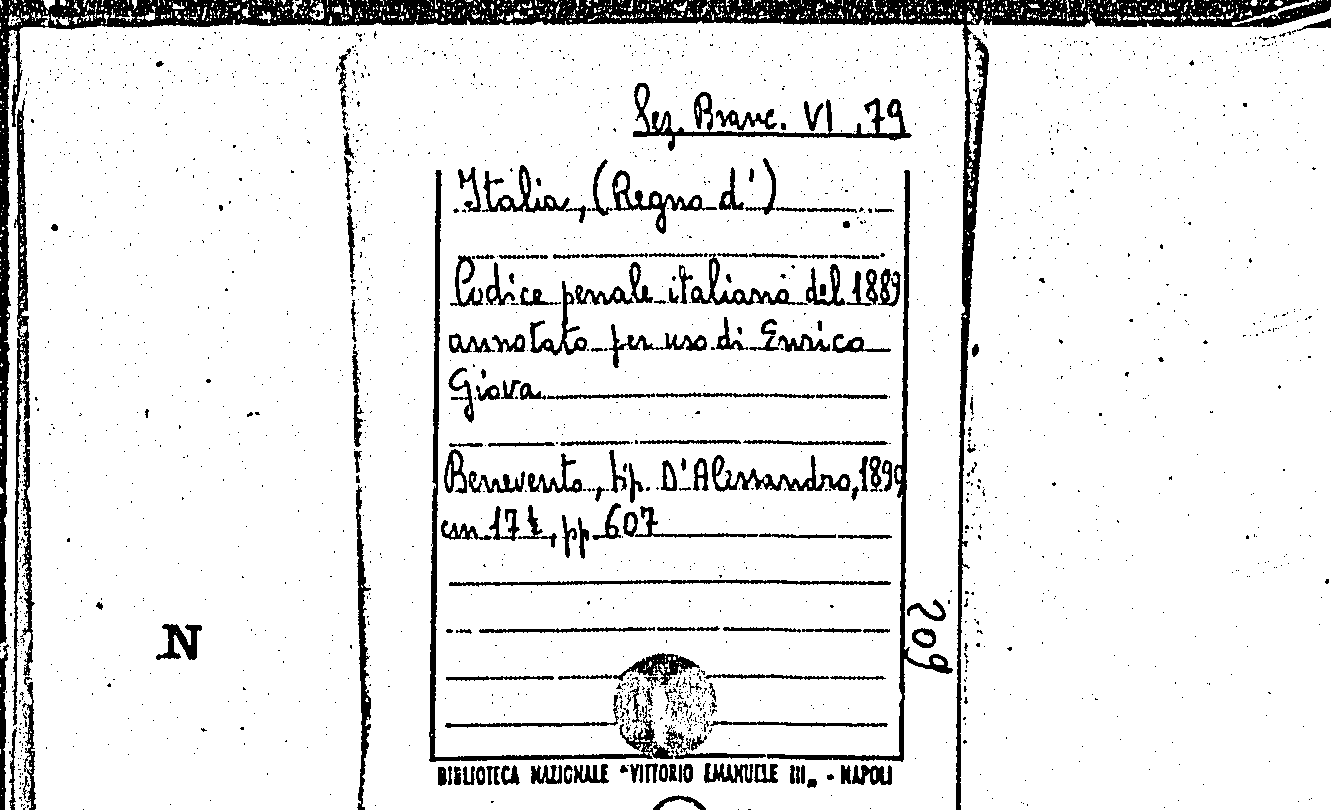 Sez. Branc. VI, 79
Italia, (Regno d')
Codice penale italiano del 1889
annotato per uso di Enrico
Giova
Benevento, tip. D'Alessandro, 1899
cm 17½, pp. 607
209
N
BIBLIOTECA NAZIONALE "VITTORIO EMANUELE III„ - NAPOLI